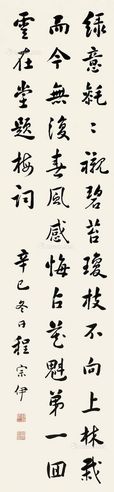 绿意毵〻衬碧苔琼枝不向上林栽
而今無復春風感悔占花魁第一回
雲在堂題梅詞
辛巳冬日程宗伊